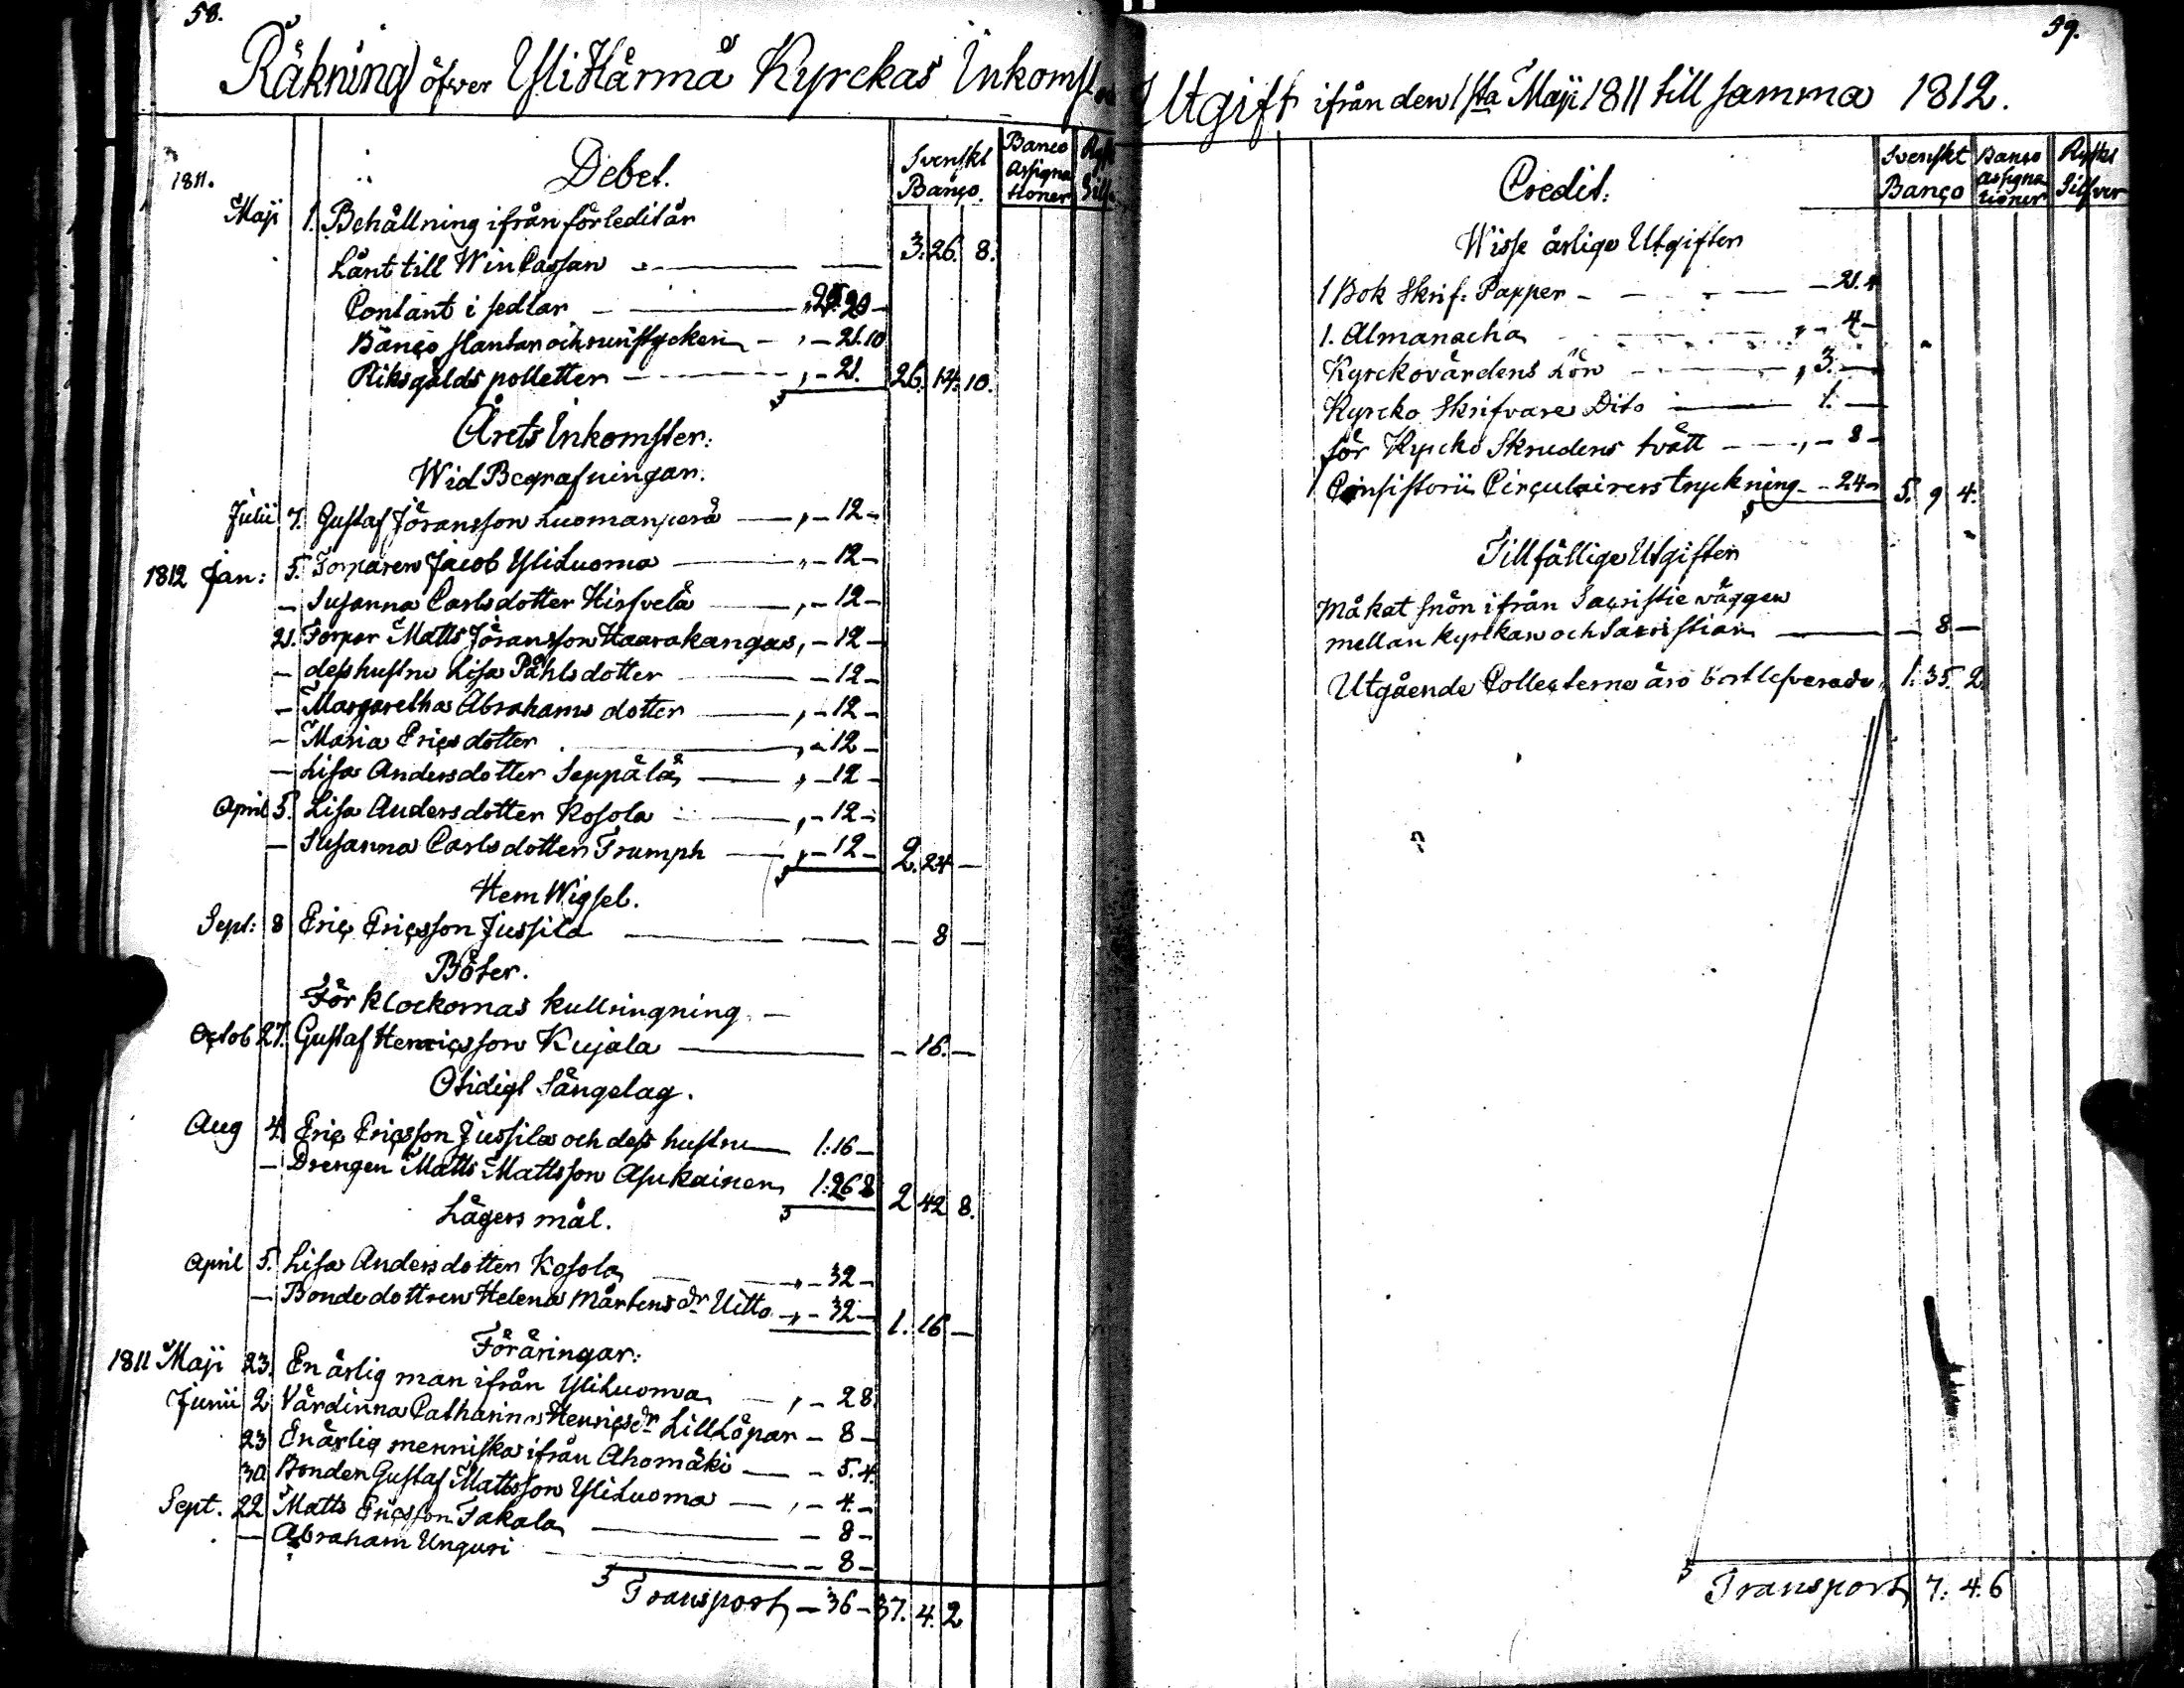 58.
Räkning öfver YliHärmä Kyrckas Inkomst
Debet.
Svenskt Banço.
Banco Assignationer
1811.
Maji 1. Behållning ifrån förledit år
Lånt till Win Cassan 3. 26. 8.
Contant i sedlar
Banço slantar och runstycken - 21.10
Riksgälds polletter - 21. 26. 14. 10.
Årets Inkomster:
Wid Begrafningar.
Julii 7. Gustaf Jöransson Luomanperä - 12 -
1812 Jan: 5. Torparen Jacob YliLuoma - 12 -
- Susanna Carlsdotter Hirsvelä - 12 -
21. Torpar Matts Jöransson Haarakangas, - 12 -
- dess hustru Lisa Påhlsdotter - 12 -
- Margaretha Abrahams dotter - 12 -
- Maria Ericsdotter - 12 -
- Lisa Andersdotter Seppälä - 12 -
April 5. Lisa Andersdotter Kosola - 12 -
- Susanna Carlsdotter Trumph - 12 - 2. 24 -
Hem Wigsel.
Sept: 8 Eric Ericsson Jussila - 8 -
Böter.
För klockornas kullringning -
Octob 27. Gustaf Henricsson Kujala - 16. -
Otidigt Sängelag.
Aug 4. Eric Ericsson Jussila och dess hustru 1:16 -
- Drengen Matts Mattsson Asukainen 1:26 8 2 42 8.
Lägers mål.
April 5. Lisa Andersdotter Kosola - 32 -
- Bondedottren Helena Mårtens dr Uitto - 32 - 1. 16 -
Föräringar:
1811 Maji 23. En ärlig man ifrån YliLuoma - 28
Junii 2 Värdinna Catharina Henricsdr LillLöpar - 8 -
23 En ärlig menniska ifrån Ahomäki - 5.4.
30 Bonden Gustaf Mattsson YliLuoma - 4. -
Sept. 22 Matts Ericsson Takala - 8 -
- Abraham Unguri - 8 -
Transport - 36 - 37. 4. 2
59.
Utgift ifrån den 1sta Maji 1811 till samma 1812.
Credit.
Svenskt Banço
Banço assignationer
Ryskt Silfver
Wisse årlige Utgifter
1 Bok Skrif: Papper - 21.4
1. Almanacha - 4 -
Kyrckovärdens Lön 3. -
Kyrcko Skrifvare Dito 1. -
för Kyrcko Skrudens tvätt - 8 -
Consistorii Circulairers tryckning - 24 - 5. 9 4.
Tillfällige Utgifter
Måkat snön ifrån Sacristie väggen
mellan kyrckan och Sacristian - 8 -
Utgående Collecterne äro bortlefverade 1. 35. 2.
Transport 7. 4. 6